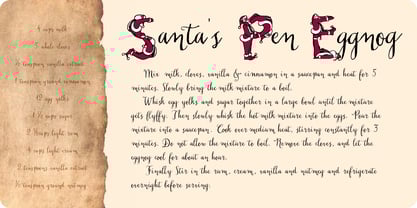 Santa's Pen Eggnog
4 cups milk
5 whole cloves
½ teaspoon vanilla extract
1 teaspoon ground cinnamon
12 egg yolks
1 ½ cups sugar
2 ½ cups light rum
4 cups light cream
2 teaspoons vanilla extract
½ teaspoon ground nutmeg
Mix milk, cloves, vanilla & cinnamon in a saucepan and heat for 5
minutes. Slowly bring the milk mixture to a boil.
Whisk egg yolks and sugar together in a large bowl until the mixture
gets fluffy. Then slowly whisk the hot milk mixture into the eggs. Pour the
mixture into a saucepan. Cook over medium heat, stirring constantly for 3
minutes. Do not allow the mixture to boil. Remove the cloves, and let the
eggnog cool for about an hour.
Finally Stir in the rum, cream, vanilla and nutmeg and refrigerate
overnight before serving.